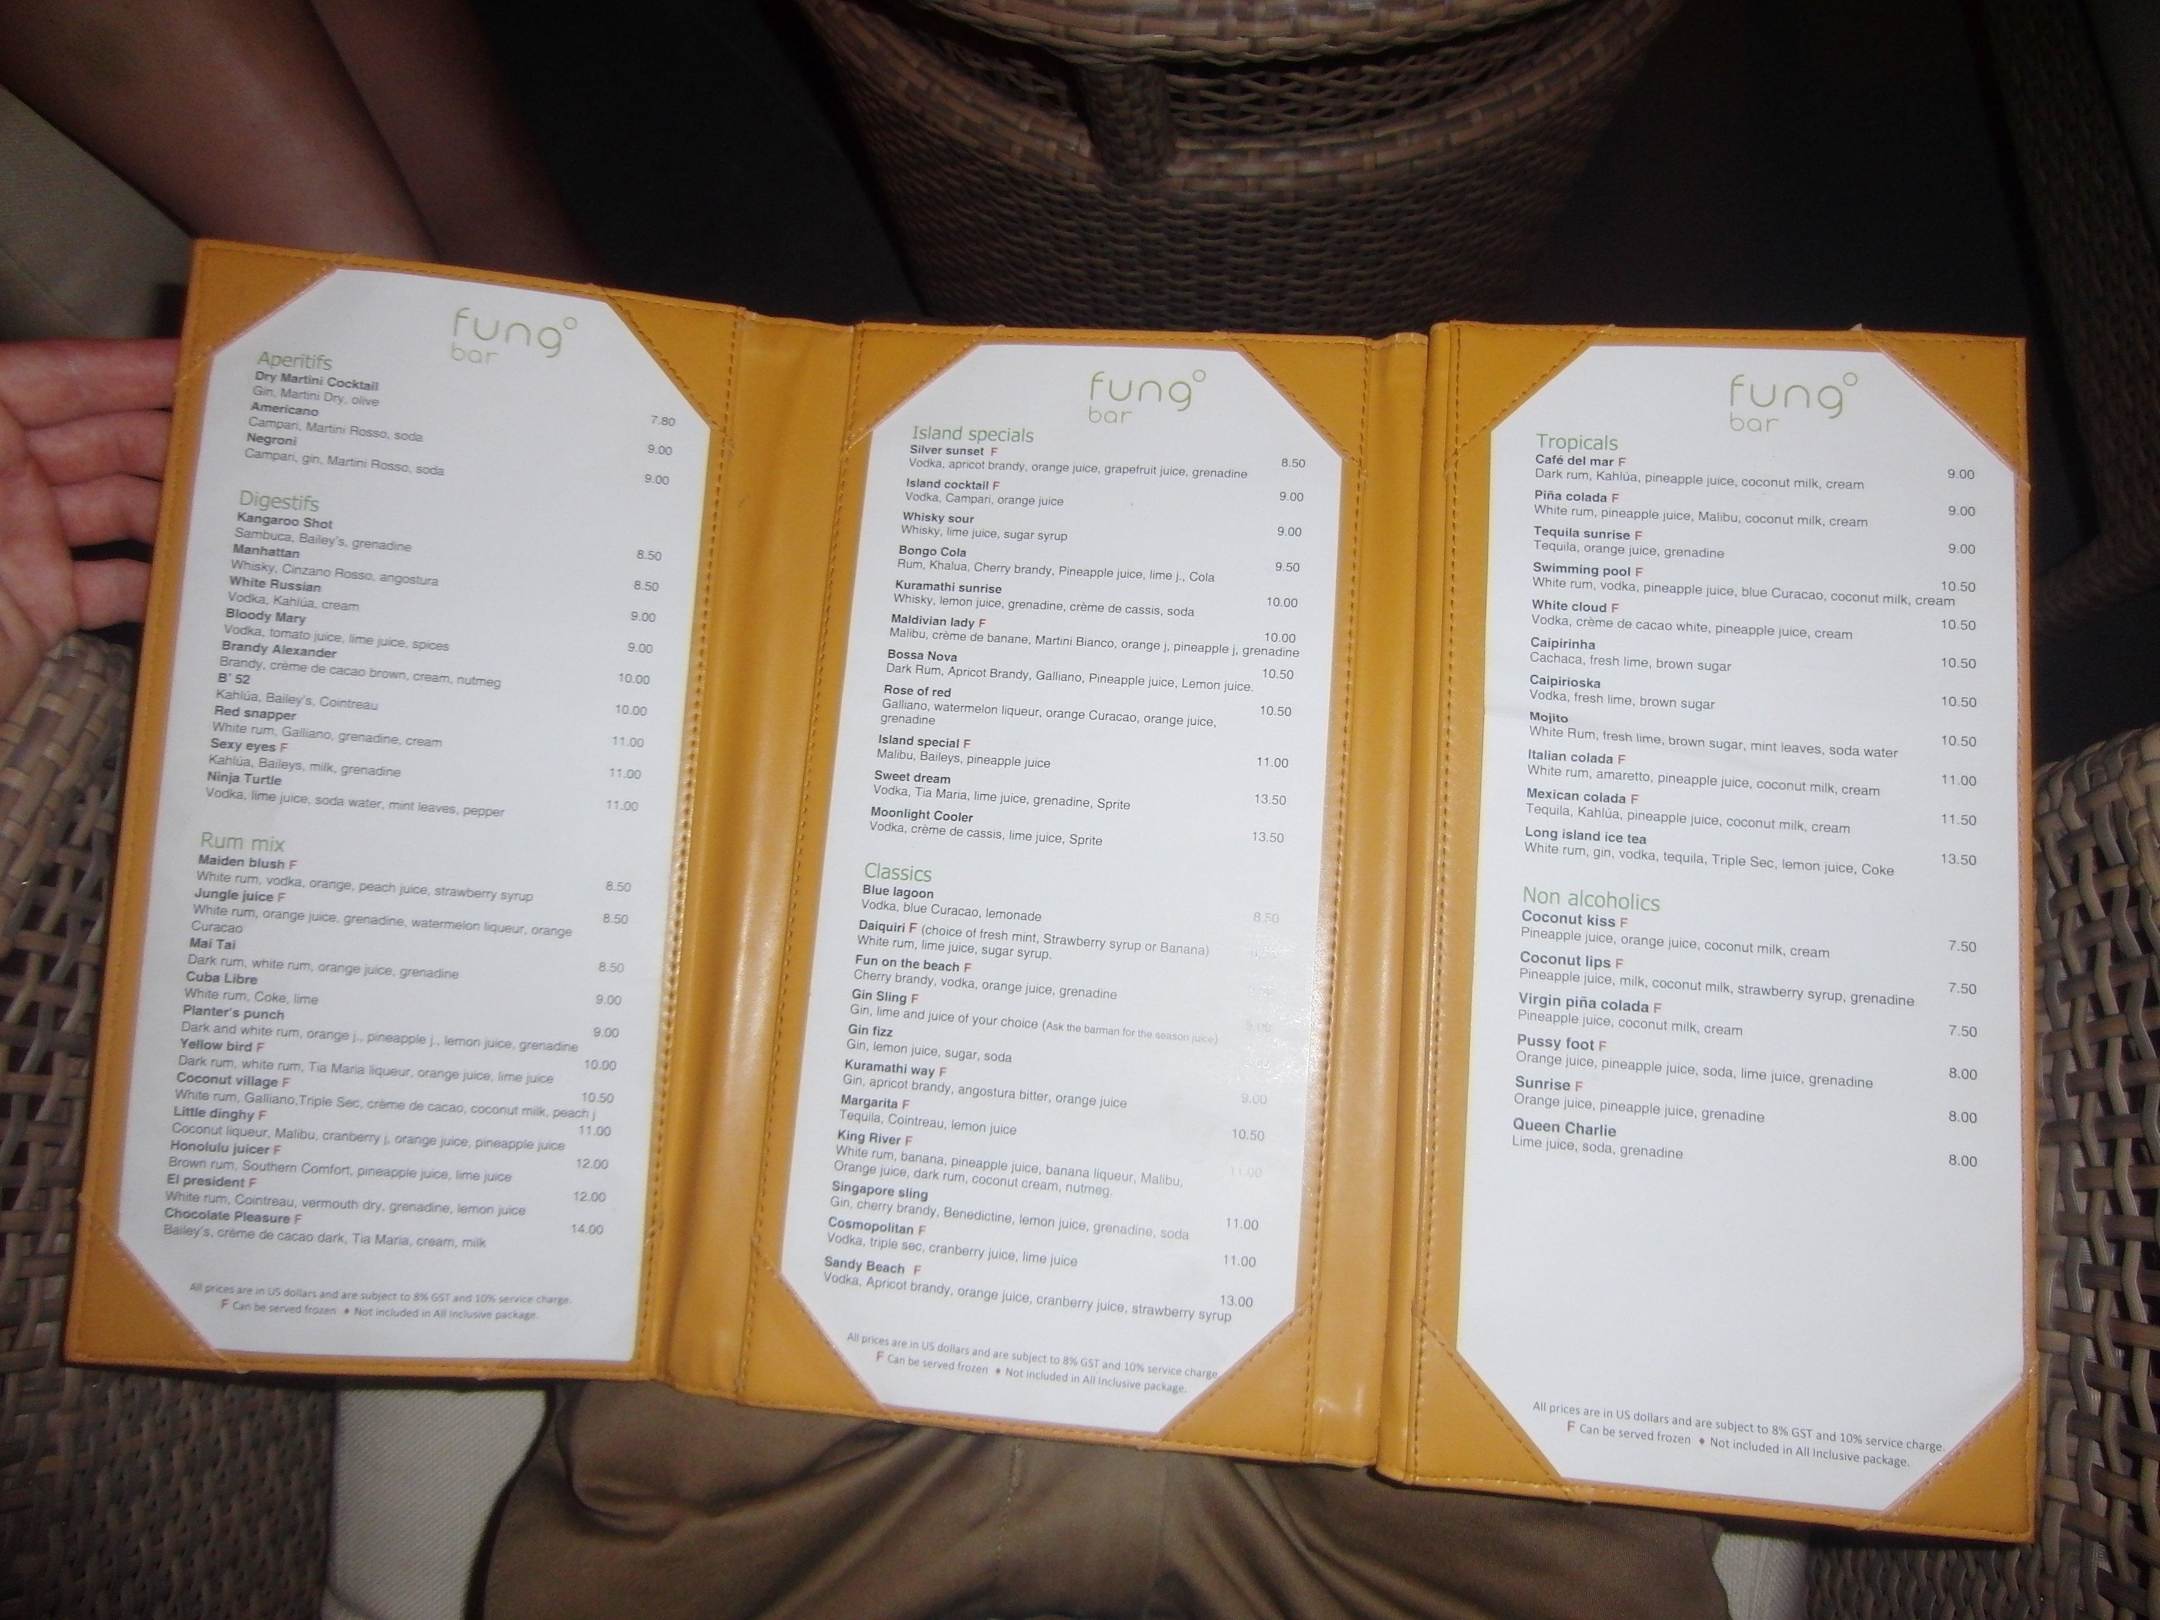 fung°
bar
Aperitifs
Dry Martini Cocktail
Gin, Martini Dry, olive 7.80
Americano
Campari, Martini Rosso, soda 9.00
Negroni
Campari, gin, Martini Rosso, soda 9.00
Digestifs
Kangaroo Shot
Sambuca, Bailey's, grenadine 8.50
Manhattan
Whisky, Cinzano Rosso, angostura 8.50
White Russian
Vodka, Kahlúa, cream 9.00
Bloody Mary
Vodka, tomato juice, lime juice, spices 9.00
Brandy Alexander
Brandy, crème de cacao brown, cream, nutmeg 10.00
B' 52
Kahlúa, Bailey's, Cointreau 10.00
Red snapper
White rum, Galliano, grenadine, cream 11.00
Sexy eyes F
Kahlúa, Baileys, milk, grenadine 11.00
Ninja Turtle
Vodka, lime juice, soda water, mint leaves, pepper 11.00
Rum mix
Maiden blush F
White rum, vodka, orange, peach juice, strawberry syrup 8.50
Jungle juice F
White rum, orange juice, grenadine, watermelon liqueur, orange 8.50
Curacao
Mai Tai
Dark rum, white rum, orange juice, grenadine 8.50
Cuba Libre
White rum, Coke, lime 9.00
Planter's punch
Dark and white rum, orange j., pineapple j., lemon juice, grenadine 9.00
Yellow bird F
Dark rum, white rum, Tia Maria liqueur, orange juice, lime juice 10.00
Coconut village F 10.50
White rum, Galliano,Triple Sec, crème de cacao, coconut milk, peach j
Little dinghy F 11.00
Coconut liqueur, Malibu, cranberry j, orange juice, pineapple juice
Honolulu juicer F 12.00
Brown rum, Southern Comfort, pineapple juice, lime juice
El president F 12.00
White rum, Cointreau, vermouth dry, grenadine, lemon juice
Chocolate Pleasure F 14.00
Bailey's, crème de cacao dark, Tia Maria, cream, milk
All prices are in US dollars and are subject to 8% GST and 10% service charge.
F Can be served frozen ♦ Not included in All Inclusive package.
fung°
bar
Island specials
Silver sunset F 8.50
Vodka, apricot brandy, orange juice, grapefruit juice, grenadine
Island cocktail F 9.00
Vodka, Campari, orange juice
Whisky sour 9.00
Whisky, lime juice, sugar syrup
Bongo Cola 9.50
Rum, Khalua, Cherry brandy, Pineapple juice, lime j., Cola
Kuramathi sunrise 10.00
Whisky, lemon juice, grenadine, crème de cassis, soda
Maldivian lady F 10.00
Malibu, crème de banane, Martini Bianco, orange j, pineapple j, grenadine
Bossa Nova 10.50
Dark Rum, Apricot Brandy, Galliano, Pineapple juice, Lemon juice.
Rose of red 10.50
Galliano, watermelon liqueur, orange Curacao, orange juice,
grenadine
Island special F 11.00
Malibu, Baileys, pineapple juice
Sweet dream 13.50
Vodka, Tia Maria, lime juice, grenadine, Sprite
Moonlight Cooler 13.50
Vodka, crème de cassis, lime juice, Sprite
Classics
Blue lagoon 8.50
Vodka, blue Curacao, lemonade
Daiquiri F (choice of fresh mint, Strawberry syrup or Banana)
White rum, lime juice, sugar syrup.
Fun on the beach F
Cherry brandy, vodka, orange juice, grenadine
Gin Sling F
Gin, lime and juice of your choice (Ask the barman for the season juice)
Gin fizz
Gin, lemon juice, sugar, soda
Kuramathi way F 9.00
Gin, apricot brandy, angostura bitter, orange juice
Margarita F 10.50
Tequila, Cointreau, lemon juice
King River F 11.00
White rum, banana, pineapple juice, banana liqueur, Malibu,
Orange juice, dark rum, coconut cream, nutmeg.
Singapore sling 11.00
Gin, cherry brandy, Benedictine, lemon juice, grenadine, soda
Cosmopolitan F 11.00
Vodka, triple sec, cranberry juice, lime juice
Sandy Beach F 13.00
Vodka, Apricot brandy, orange juice, cranberry juice, strawberry syrup
All prices are in US dollars and are subject to 8% GST and 10% service charge
F Can be served frozen ♦ Not included in All Inclusive package.
fung°
bar
Tropicals
Café del mar F 9.00
Dark rum, Kahlúa, pineapple juice, coconut milk, cream
Piña colada F 9.00
White rum, pineapple juice, Malibu, coconut milk, cream
Tequila sunrise F 9.00
Tequila, orange juice, grenadine
Swimming pool F 10.50
White rum, vodka, pineapple juice, blue Curacao, coconut milk, cream
White cloud F 10.50
Vodka, crème de cacao white, pineapple juice, cream
Caipirinha 10.50
Cachaca, fresh lime, brown sugar
Caipirioska 10.50
Vodka, fresh lime, brown sugar
Mojito 10.50
White Rum, fresh lime, brown sugar, mint leaves, soda water
Italian colada F 11.00
White rum, amaretto, pineapple juice, coconut milk, cream
Mexican colada F 11.50
Tequila, Kahlúa, pineapple juice, coconut milk, cream
Long island ice tea 13.50
White rum, gin, vodka, tequila, Triple Sec, lemon juice, Coke
Non alcoholics
Coconut kiss F 7.50
Pineapple juice, orange juice, coconut milk, cream
Coconut lips F 7.50
Pineapple juice, milk, coconut milk, strawberry syrup, grenadine
Virgin piña colada F 7.50
Pineapple juice, coconut milk, cream
Pussy foot F 8.00
Orange juice, pineapple juice, soda, lime juice, grenadine
Sunrise F 8.00
Orange juice, pineapple juice, grenadine
Queen Charlie 8.00
Lime juice, soda, grenadine
All prices are in US dollars and are subject to 8% GST and 10% service charge.
F Can be served frozen ♦ Not included in All Inclusive package.